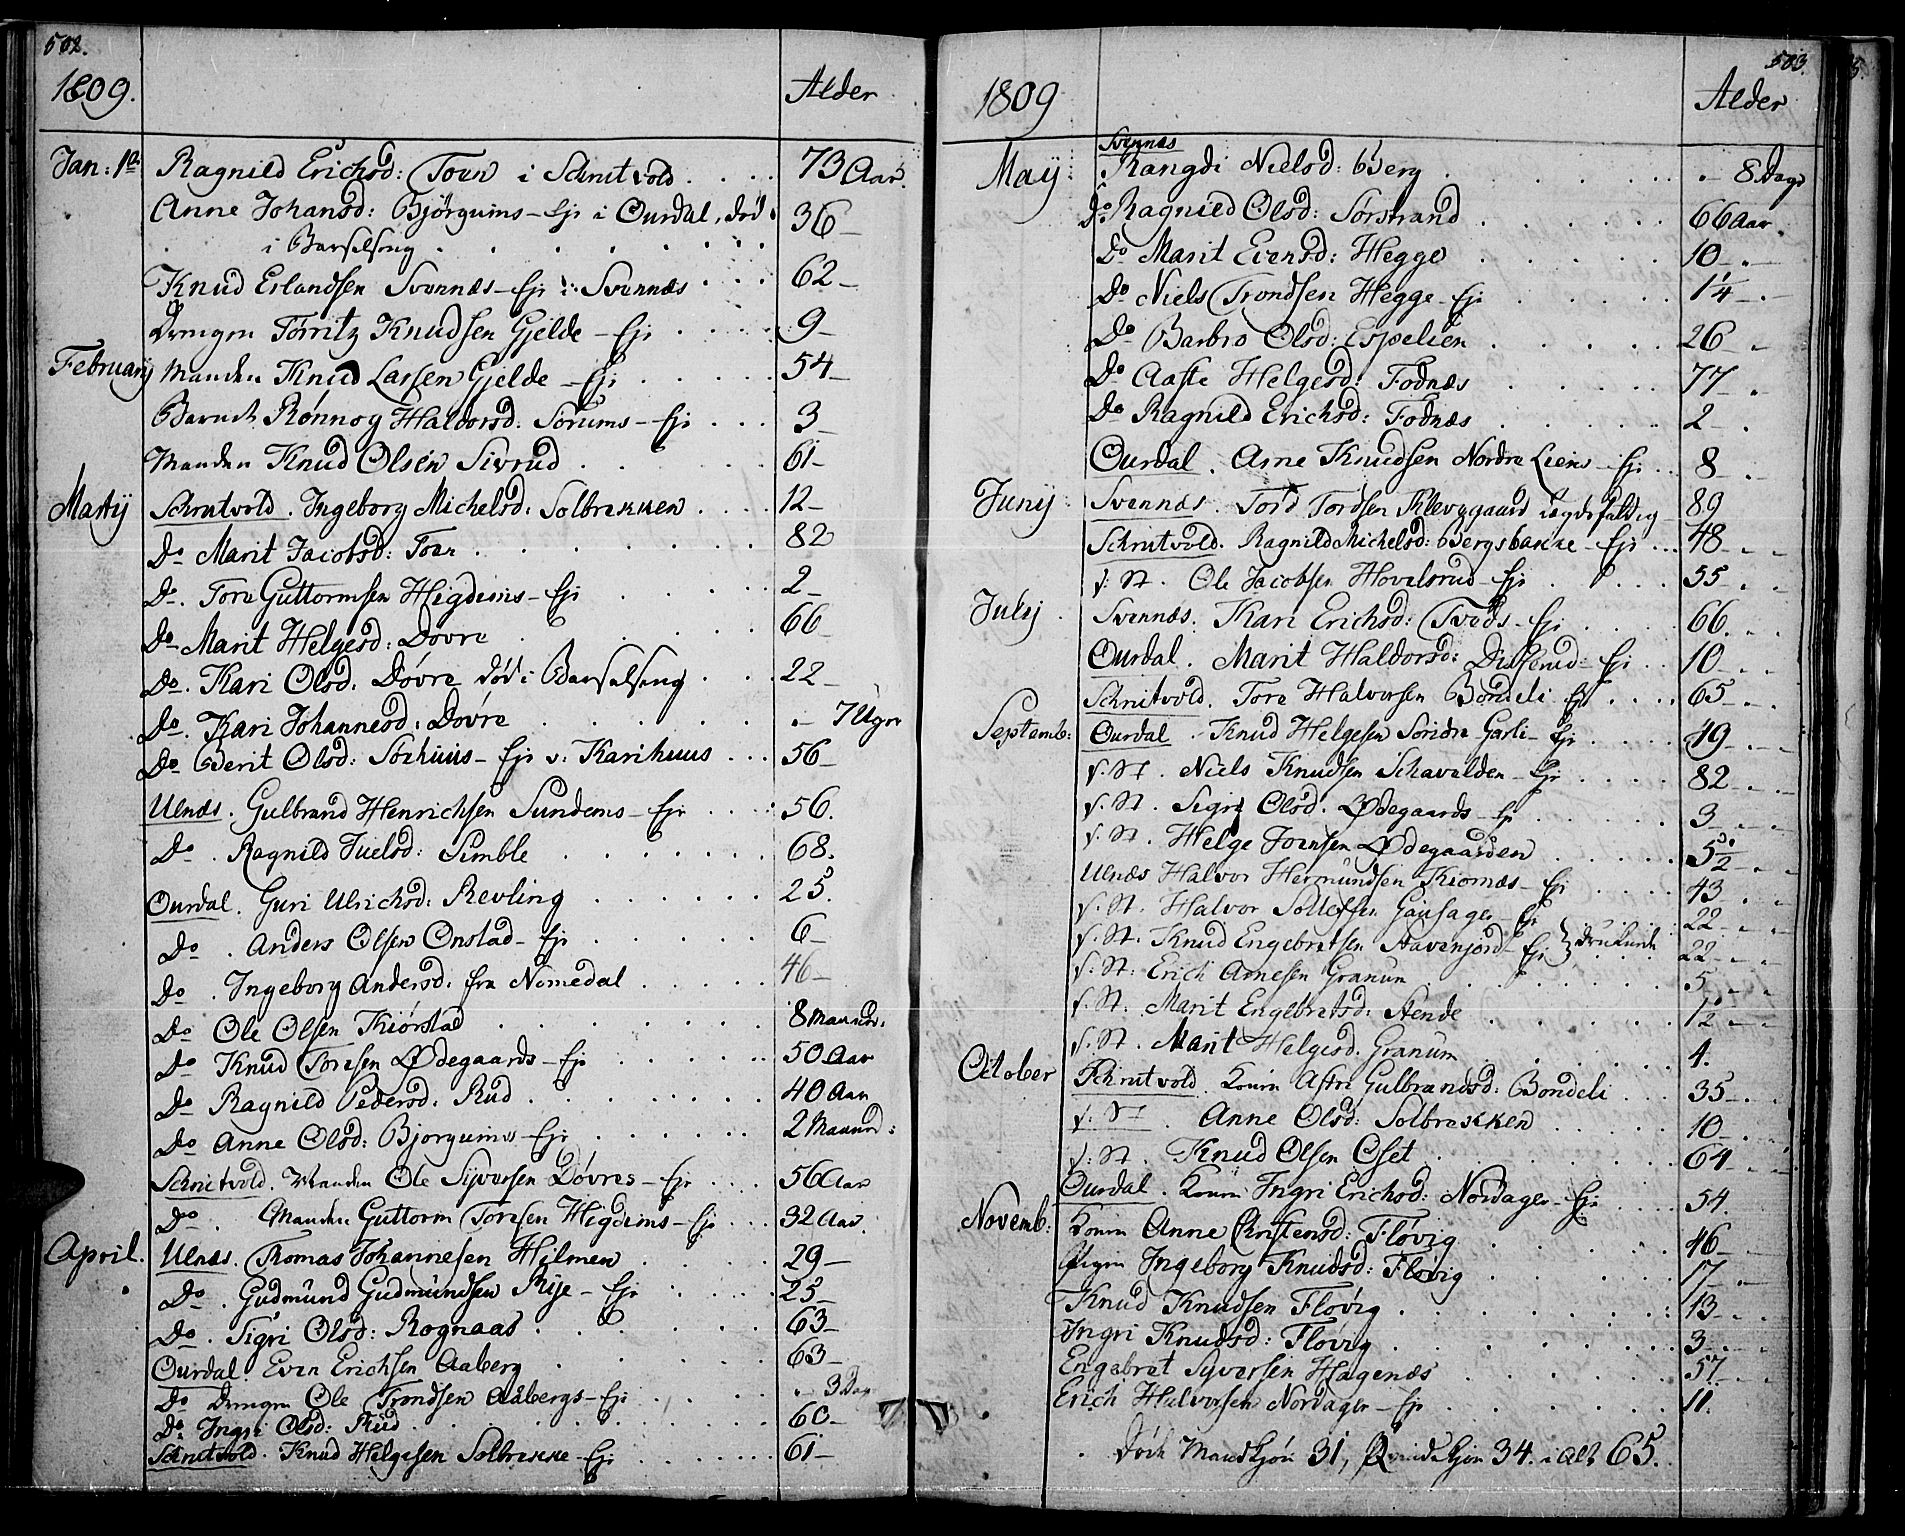 502.
1809. Alder
Jan: 1a Ragnild Erichsd: Toen i Schrutvold 73 Aar.
Anne Johansd: Bjørguims-Ejr i Ourdal, død 36-
i Barselseng
Knud Erlandsen Svennæs-Ejr i Svennæs 62-
Drengen Torritz Knudsen Gjelde-Ejr 9-
February Manden Knud Larsen Gjelde-Ejr 54-
Barnet Rønnog Haldorsd: Sørums-Ejr 3-
Manden Knud Olsen Sivrud 61-
Martij Schrutvold. Ingeborg Michelsd: Solbrekken 12-
Do Marit Jacobsd: Toen 82
Do. Tore Guttormsen Høgdeims-Ejr 2-
Do Marit Helgesd: Dovre 66
Do. Kari Olsd. Døvre død i Barselseng 22-
Do. Kari Johannesd: Dovre - 7 Uger
Do Berit Olsd: Storhuus-Ejr v: Karihuus 56-
Ulnæs. Gulbrand Henrichsen Sundems-Ejr 56.
Do. Ragnild Juelsd: Simble 68.
Ourdal. Guri Ulrichsd: Revling 25.
Do. Anders Olsen Onstad-Ejr 6-
Do. Ingeborg Andersd: fra Nomedal 46-
Do Ole Olsen Kiørstad 8 Maaned.
Do Knud Toresen Ødegaards-Ejr 50 Aar
Do Ragnild Pedersd. Rud 40 Aar
Do Anne Olsd: Bjorguims-Ejr 2 Maaned:
Schrutvold. Manden Ole Syversen Dovres-Ejr 56 Aar
Do. Manden Guttorm Toresen Høgdeims-Ejr 32 Aar.
April. Ulnæs. Thomas Johannesen Hilmen 29-
Do. Gudmund Gudmundsen Rije-Ejr 25-
Do. Sigri Olsd: Rognaas 63-
Ourdal Even Erichsen Aaberg 63-
Do Drengen Ole Trondsen Aabergs-Ejr - 3 Dag
Do Ingri Olsd: Rud 60-
Schrutvold. Knud Helgesen Solbrekke-Ejr 61-
503.
1809 Alder
May Svennæs
Rangdi Nielsd: Berg - 8 Dage
Do Ragnild Olsd: Sørstrand 66 Aar.
Do Marit Evensd: Hegge 10-
Do Niels Trondsen Hegge-Ejr 1/4-
Do Barbro Olsd: Espelien 26-
Do Aaste Helgesd: Fodnæs 77-
Do Ragnild Erichsd: Fodnæs 2-
Ourdal. Arne Knudsen Nordre Liens-Ejr 8-
Junij Svennæs. Tord Tordsen Klevgaard Lægdsfældig 89
Schrutvold. Ragnild Michelsd: Bergsbakke-Ejr 48-
s: St. Ole Jacobsen Hovelsrud-Ejr 55-
Julij Svennæs. Kari Erichsd: Tveds-Ejr 66.
Ourdal. Marit Haldorsd: Disserud-Ejr 10-
Schrutvold. Tore Halvorsen Bondeli Ejr 65-
Septemb: Ourdal. Knud Helgesen Søridre Garli-Ejr 49-
s. St. Niels Knudsen Schavelden-Ejr 82-
s. St. Sigri Olsd. Ødegaards-Ejr 3-
s. St. Helge Joensen Ødegaarden 5 1/2-
Ulnæs Halvor Hermundsen Kiomæs-Ejr 43-
s. St. Halvor Sollefsen Gausager-Ejr 22-
s. St. Knud Engebretsen Stavenjord-Ejr } druknede 22-
s. St: Erich Arnesen Granum 5-
s. St: Marit Engebretsd: Stende 1/2-
s. St. Marit Helgesd. Granum 4.
October Schrutvold. Konen Astri Gulbrandsd: Bondeli 35-
s: St. Anne Olsd: Solbrekken 10-
s: St. Knud Olsen Oset 64-
Ourdal. Konen Ingri Erichsd: Nordager-Ejr 54.
Novemb: Konen Anne Christensd: Fløvig 46-
Pigen Ingeborg Knudsd: Fløvig 17-
Knud Knudsen Fløvig 13-
Ingri Knudsd: Fløvig 3-
Engebret Syversen Hagenæs 57.
Erich Halvorsen Nordager-Ejr 11.
Døde Mandkjøn 31, Qvindekjøn 34. i Alt 65.